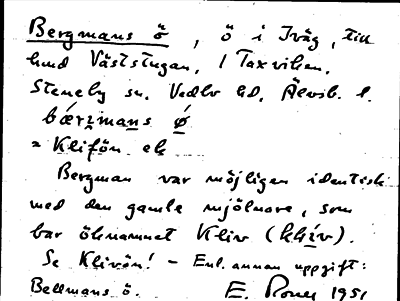 Bergmans ö, ö i Iväg, till
hund Väststugan, i Taxviken.
Steneby sn. Vedbo hd. Älvsb. l.
bǽrzmans ǿ
= Klifön. el.
Bergman var möjligen identisk
med den gamle mjölnare, som
bar öknamnet Kliv (khiv).
Se Klivön! - Enl. annan uppgift:
Bellmans ö. E. 1951